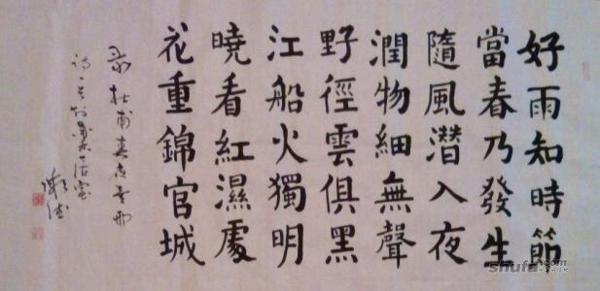 好雨知時節
當春乃發生
隨風潛入夜
潤物細無聲
野徑雲俱黑
江船火獨明
曉看紅濕處
花重錦官城
录杜甫春夜喜雨
诗一首
shufa